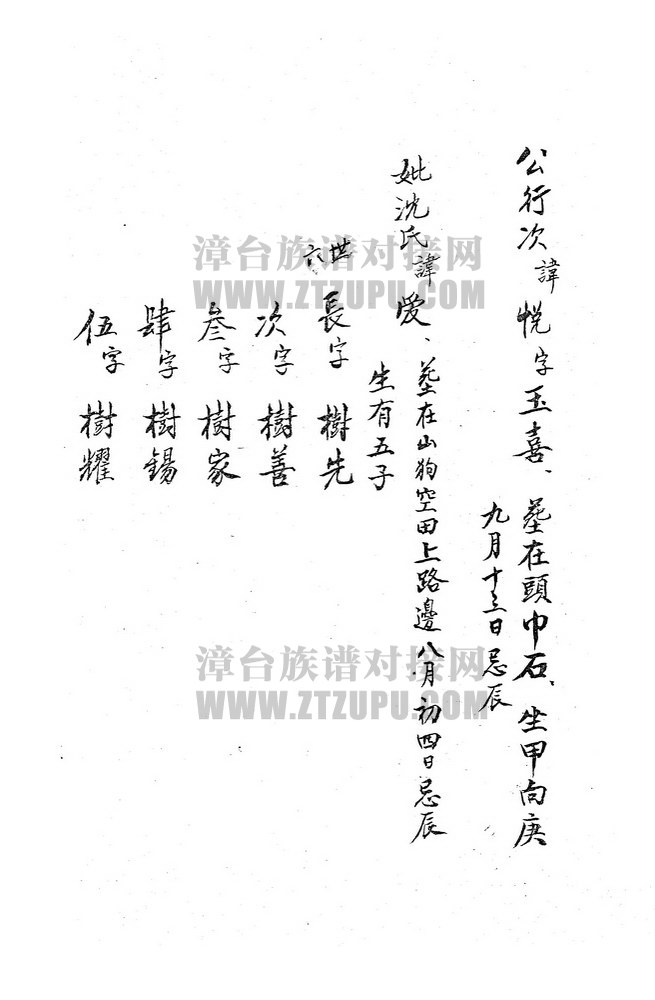 公行次諱悦字玉喜、墓在頭巾石、坐甲向庚
九月十三日忌辰
妣沈氏諱愛、墓在山狗空田上路邊八月初四日忌辰
生有五子
六世
長字樹先
次字樹善
叁字樹家
肆字樹錫
伍字樹耀
漳台族谱对接网
WWW.ZTZUPU.COM
漳台族谱对接网
WWW.ZTZUPU.COM